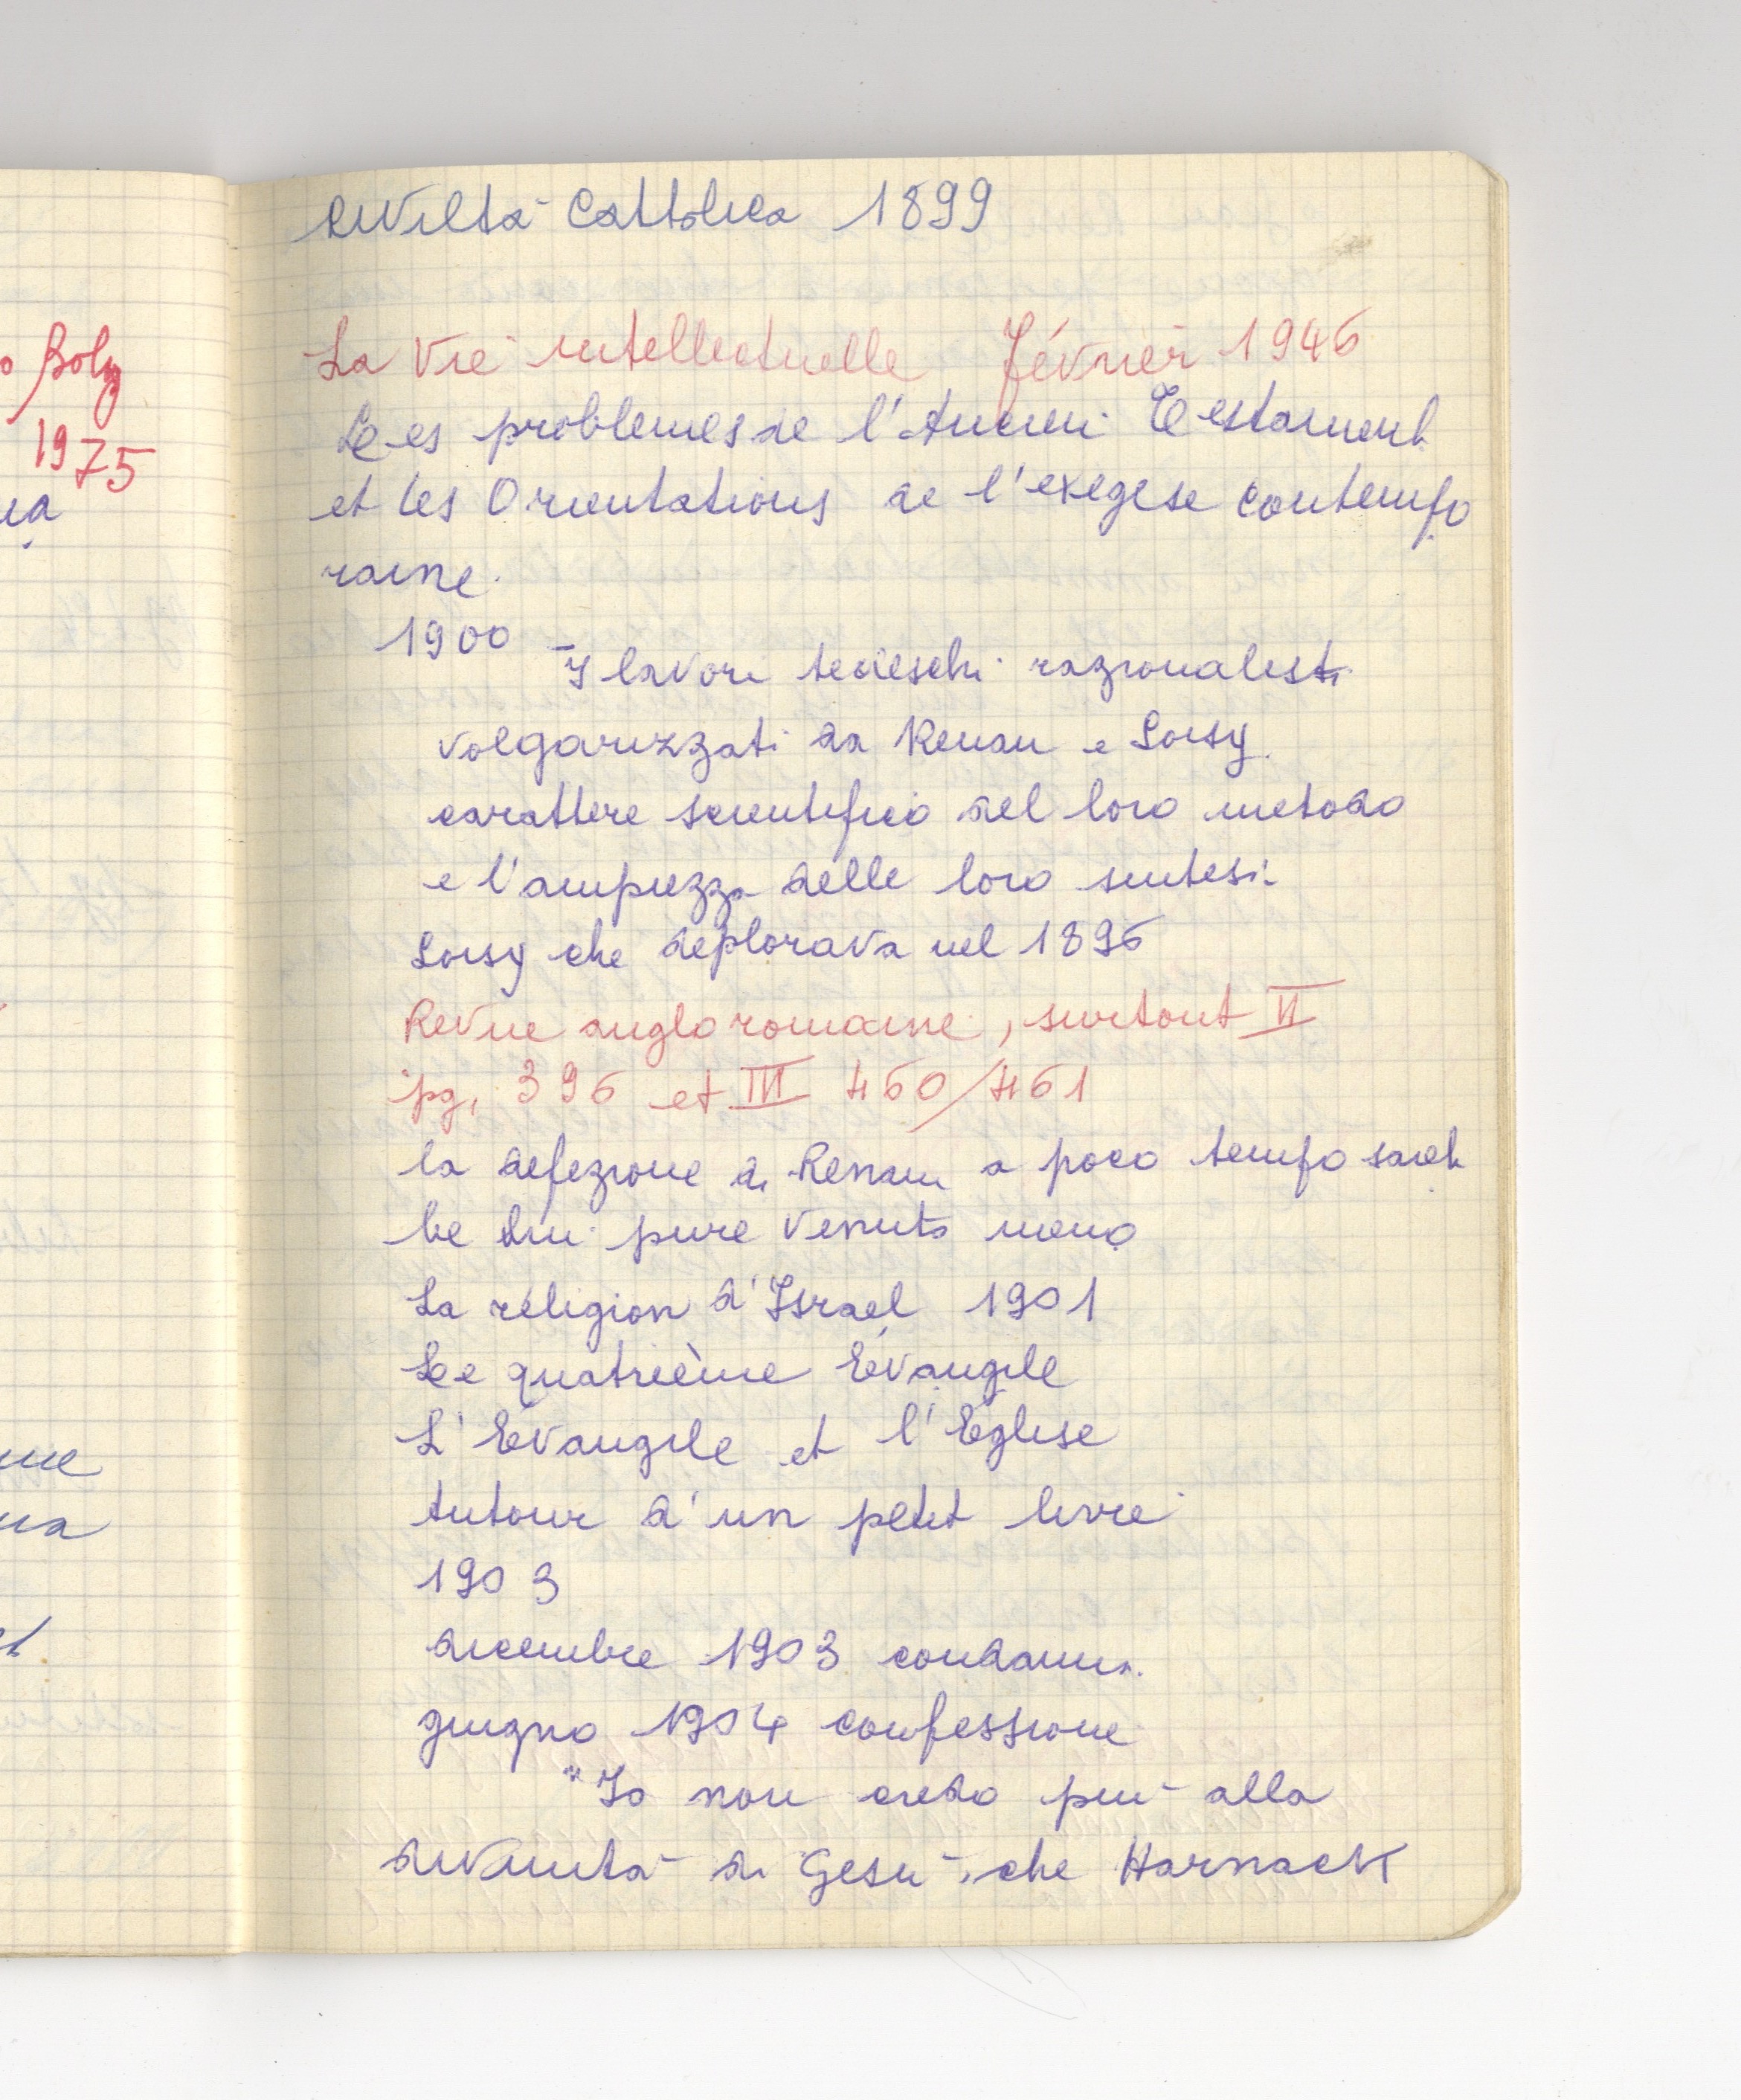 o Bolg
1975
ua
me
na
Civiltà Cattolica 1899
La Vie intellectuelle Février 1946
Les problemes de l'Ancien Testament
et les Orientations de l'exegese contempo
raine.
1900 - I lavori tedeschi razionalisti
volgarizzati da Renan e Loisy
carattere scientifico del loro metodo
e l'ampiezza delle loro sintesi
Loisy che deplorava nel 1896
Revue anglo romaine, surtout II
pg. 396 et III 460/461
la defezione di Renan a poco tempo sareb
be lui pure venuto meno
La religion d'Israel 1901
Le quatrième Évangile
L'Évangile et l'Église
Autour d'un petit livre
1903
dicembre 1903 condanna.
giugno 1904 confessione
"Io non credo più alla
divinità di Gesù, che Harnack